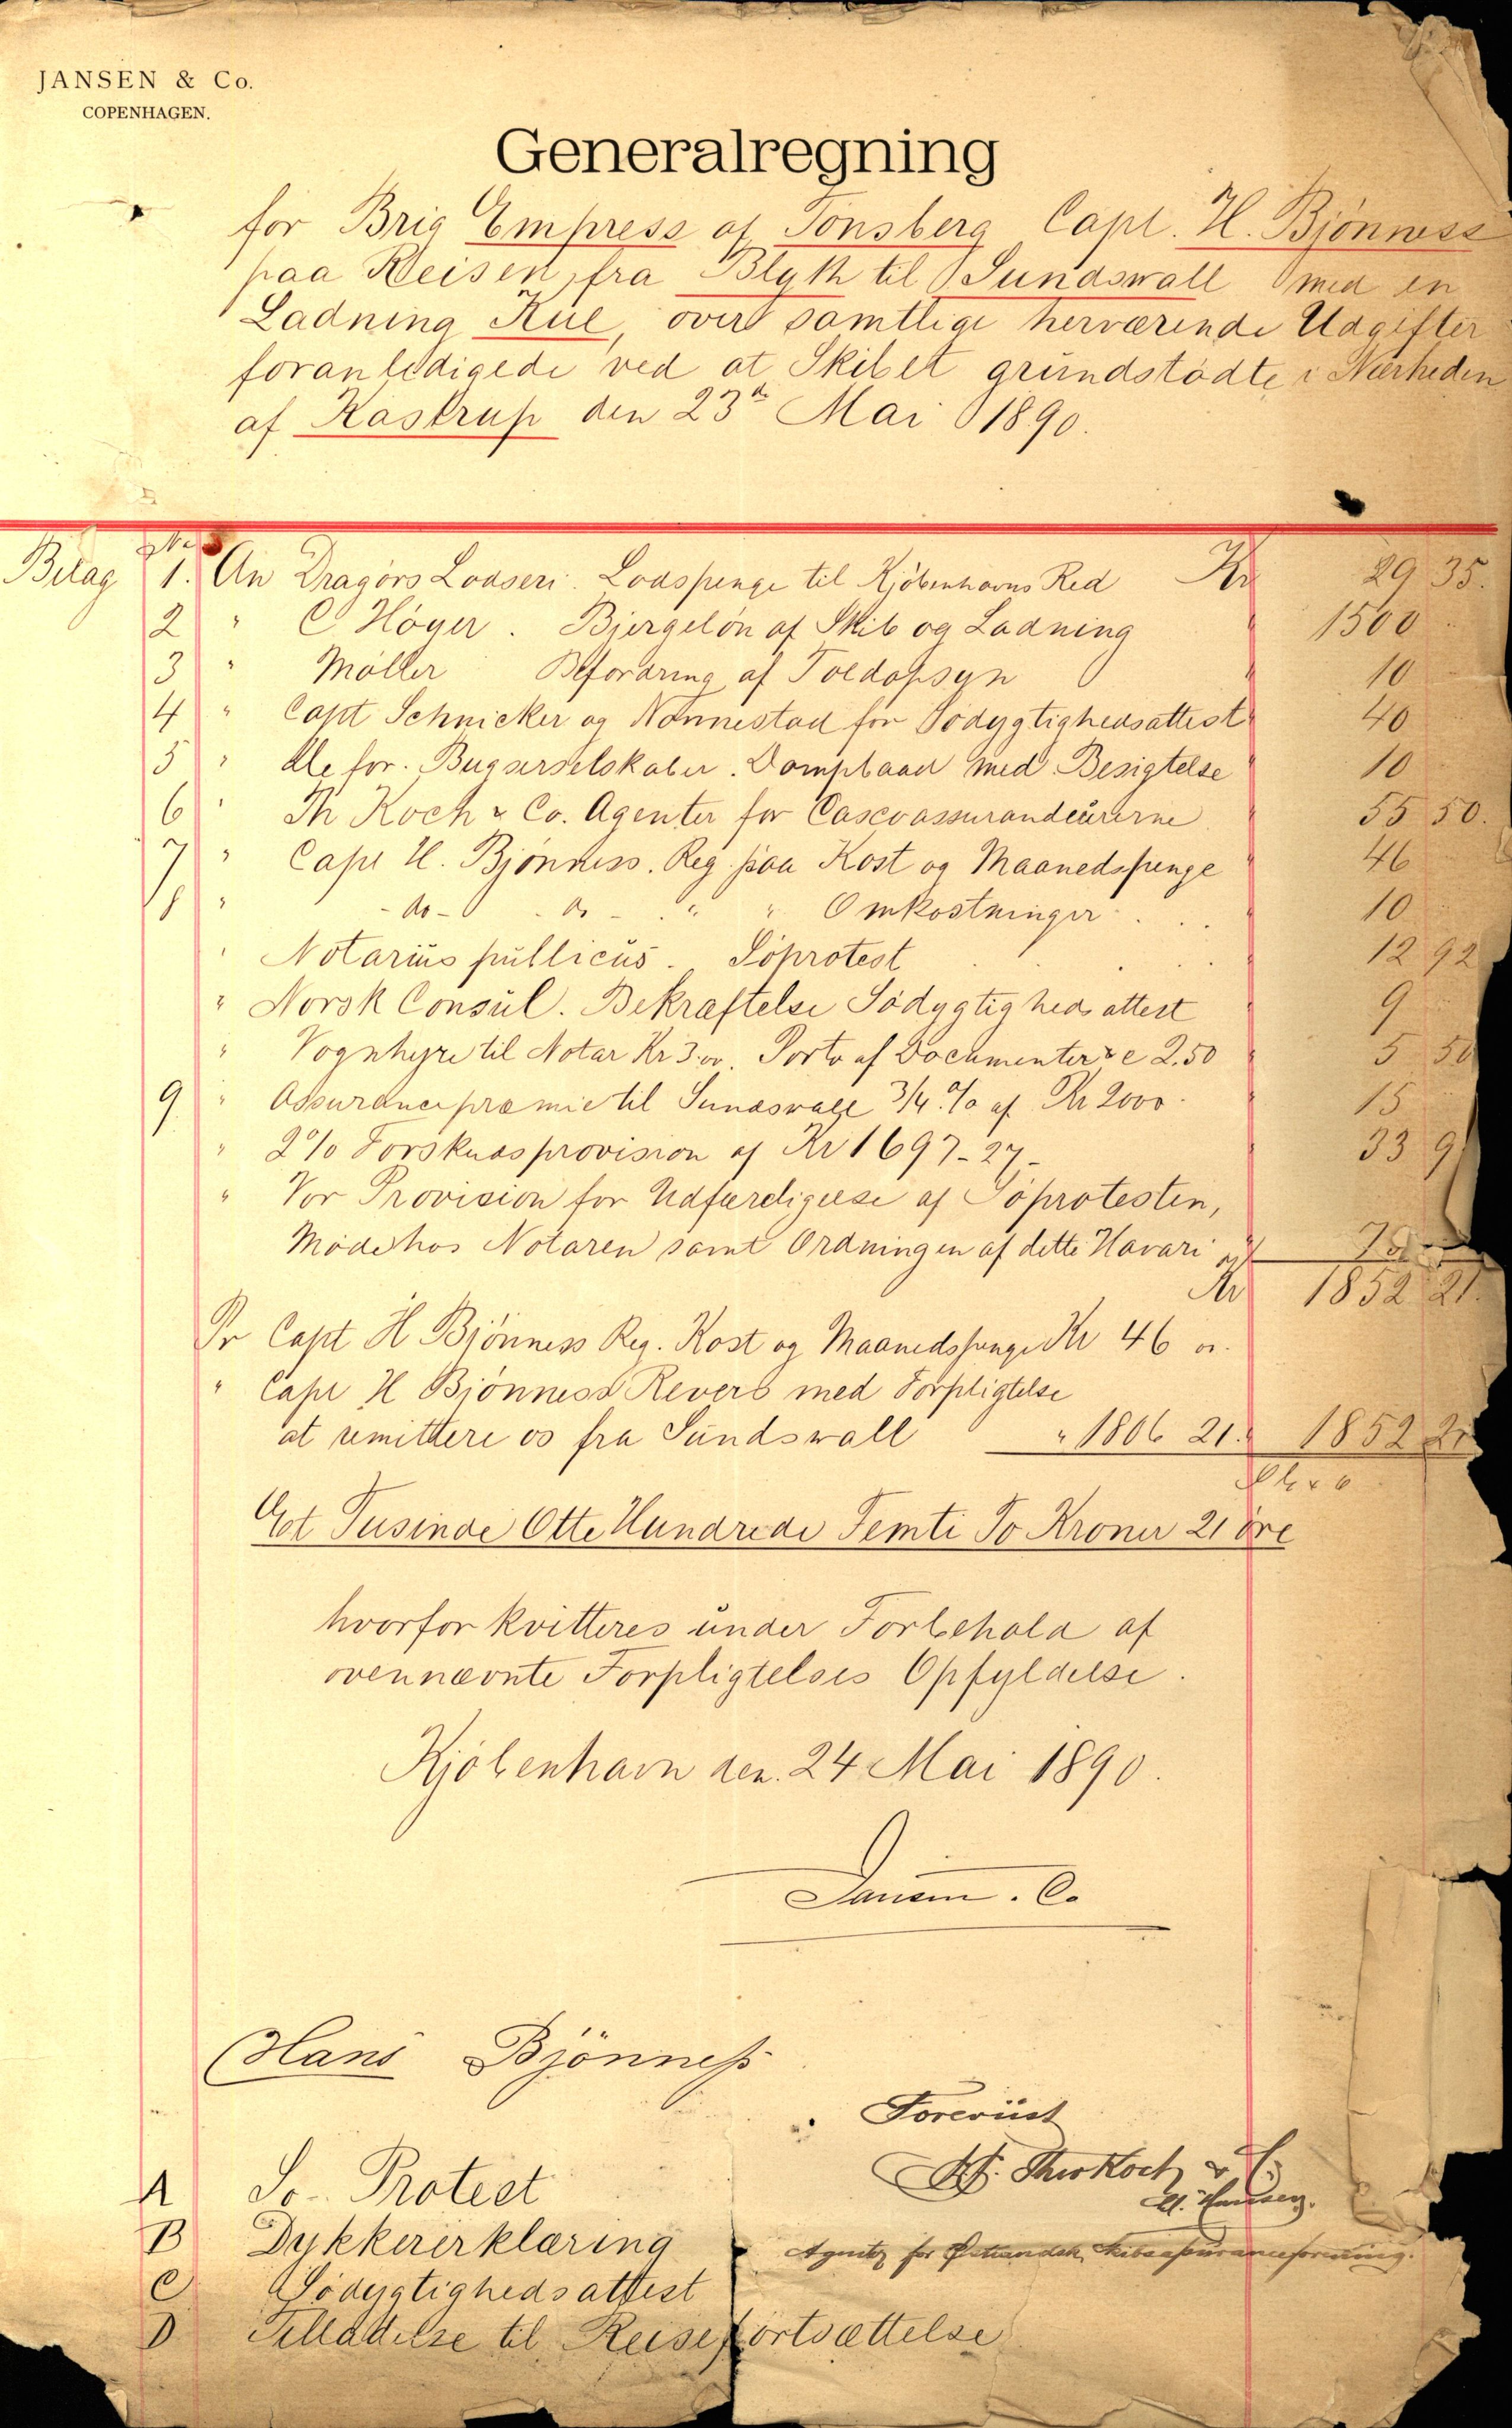 JANSEN & Co.
COPENHAGEN.
Generalregning
for Brig Empress af Tönsberg Capt. H. Bjönness
paa Reisen fra Blyth til Sundswall med en
Ladning Kul, over samtlige herværende Udgifter
foranledigede ved at Skibet grundstödte i Nærheden
af Kastrup den 23de Mai 1890.
Bilag No 1. An Dragörs Lodseri. Lodspenge til Kjöbenhavns Red Kr 29 35.
2 " C Höyer. Bjergelön af Skib og Ladning 1500
3 " Möller Befordring af Toldopsyn 10
4 " Capt Schnicker og Nonnestad for Södygtighedsattest 40
5 " De for. Bugserselskaber. Dampbaad med Besigtelse 10
6 " Th Koch & Co. Agenter for Cascoassurandeurerne 55 50.
7 " Capt H. Bjönness. Reg. paa Kost og Maanedspenge 46
8 " - do - - do - " " Omkostninger 10
" Notarius publicus. Söprotest 12 92
" Norsk Consul. Bekræftelse Södygtigheds attest 9
" Vognhyre til Notar Kr 3.00. Porto af Documenter &c 2.50 5 50
9 " Assurancepræmie til Sundswall 3/4 % af Kr 2000. 15
" 2% Forskudsprovision af Kr 1697-27- 33 9
" Vor Provision for Udfærdigelse af Söprotesten,
Möde hos Notaren samt Ordningen af dette Havari 75
Kr 1852 21.
Pr Capt H Bjönness Reg. Kost og Maanedspenge Kr 46 "
" Capt H Bjönness Revers med Forpligtelse
at remittere os fra Sundswall " 1806 21. 1852 21
Et Tusinde Otte Hundrede Femti To Kroner 21 öre
hvorfor kvitteres under Forbehold af
ovennævnte Forpligtelses Opfyldelse.
Kjöbenhavn den. 24 Mai 1890.
Jansen. Co
Hans Bjönness
Foreviist
Th. Koch & C.
Hansen.
A Sö-Protest
B Dykkererklæring
Agenter for Skibsassuranceforening.
C Södygtighedsattest
D Tilladelse til Reisefortsættelse